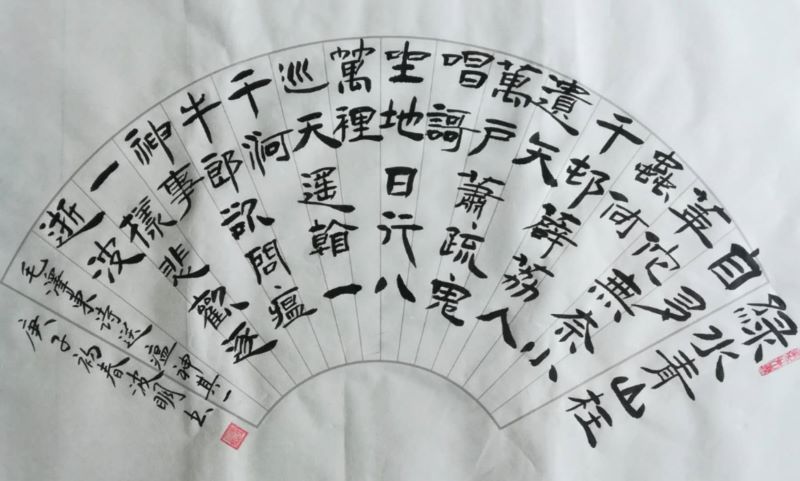 綠水青山枉
自多
華佗無奈小
蟲何
千邨薜荔人
遺矢
萬戶蕭疏鬼
唱謌
坐地日行八
萬裡
巡天遥一
千河
牛郎欲問瘟
神事
一樣悲歡逐
逝波
毛澤東詩送瘟神其一
庚子初春波明书